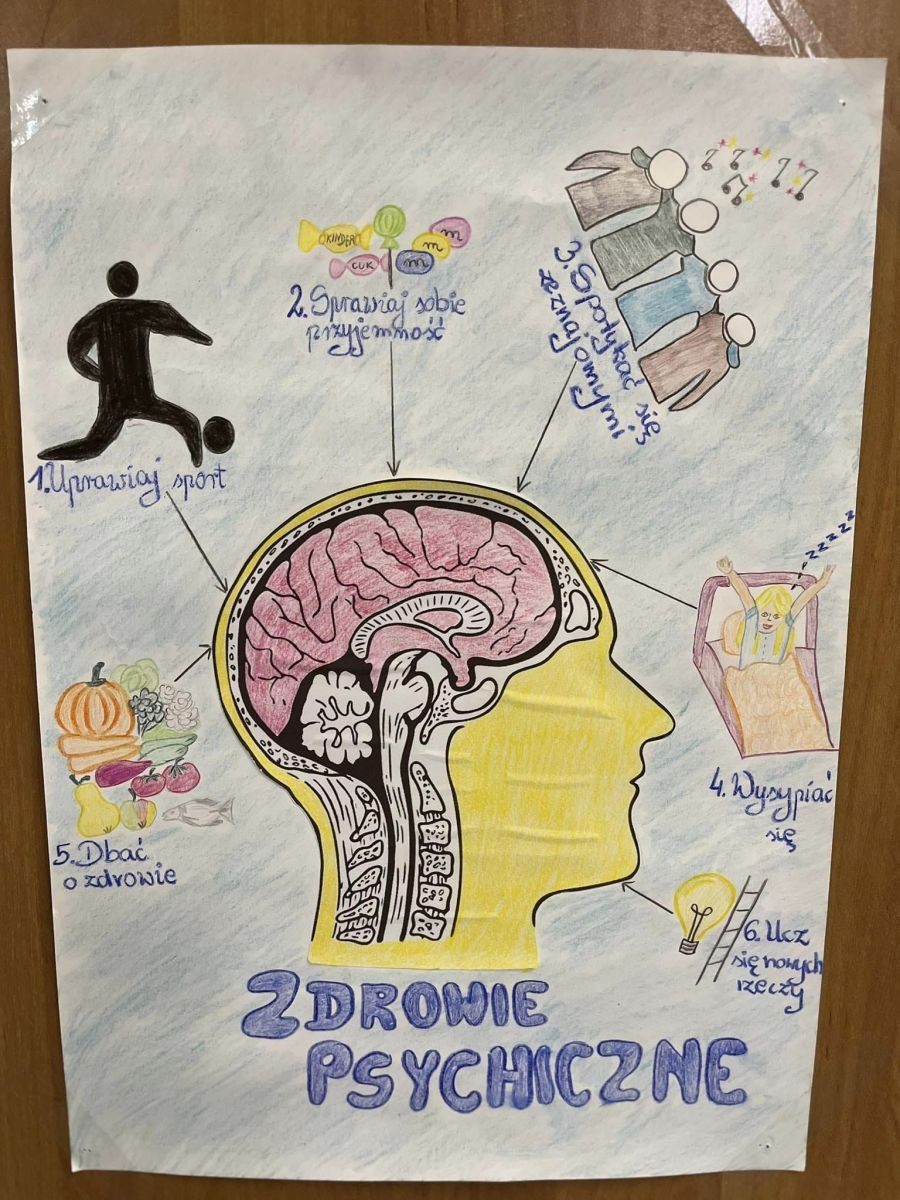 KINDER
CUK
m
m
m
2. Sprawiaj sobie
przyjemność
3. Spotykać się
ze znajomymi
1. Uprawiaj sport
zzzzz
4. Wysypiać
się
5. Dbać
o zdrowie
6. Ucz
się nowych
rzeczy
ZDROWIE
PSYCHICZNE